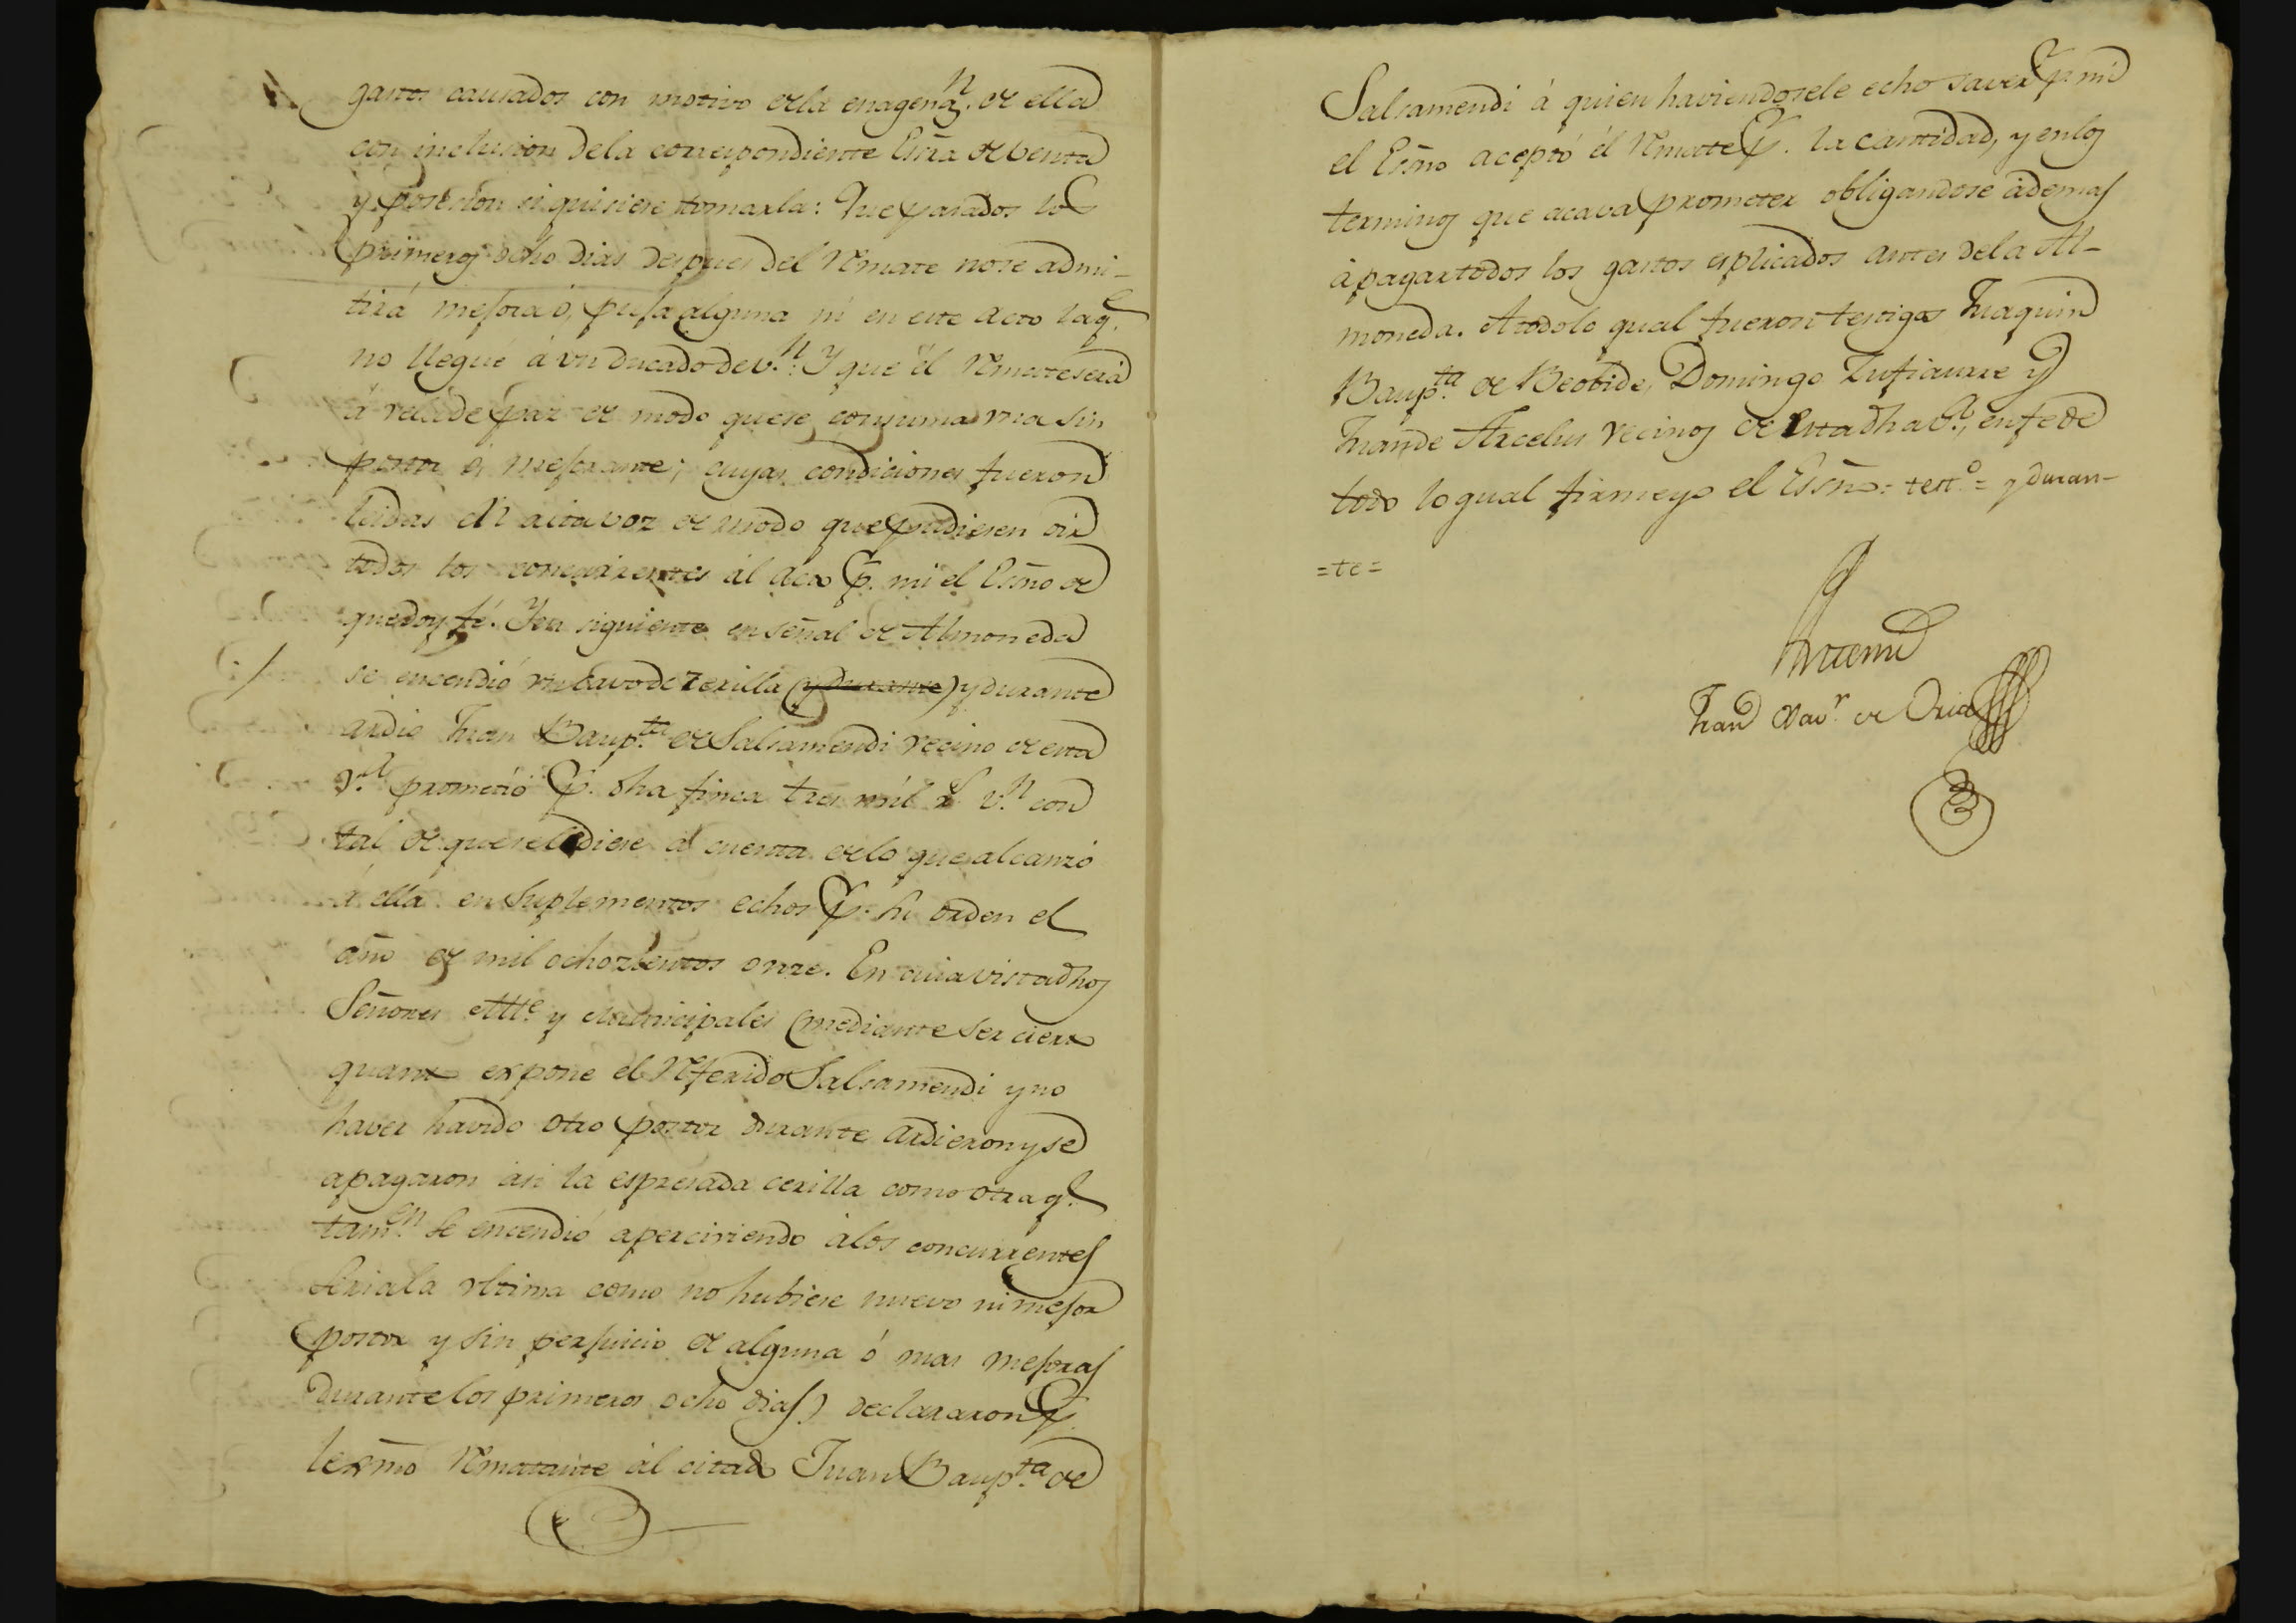 gastos causados con motivo de la enagenaz.n de ella
con inclusion dela correspondiente Esñra de venta
y posesion si quisiere tomarla: Que pasados los
primeros ocho dias despues del Remate nose admi-
tirá mejora ó, puja alguna ni en este acto laq.e
no llegue á un ducado de v.n: Y que él Remate será
á de modo quese consuma una sin
postor ó, mejorante; cuyas condiciones fueron
leidas en alta voz de modo que pudiesen oir
todos los concurrentes al acto p.r mi el Esñno de
quedoy fé. Yen siguiente en señal de Almoneda
se encendió un cavo de zerilla (y durante) y durante
ardio Juan Baup.ta de Salsamendi vecino de esta
V.a prometió p.r dha finca tres mil r.s v.n con
tal de que sele diese á cuenta de lo que alcanzó
á ella en suplementos echos p.r su orden el
año de mil ochozientos onze. En cuia vista dhos
Señores Alc.e y Municipales (mediante ser cierto
quanto expone el Referido Salsamendi y no
haver havido otro postor durante ardieron y se
apagaron asi la espresada cerilla como otra q.e
tam.en se encendió aperciviendo álos concurrentes
seria la ultima como no hubiese nuevo ni mejor
postor y sin perjuicio de alguna ó mas mejoras
durante los primeros ocho dias) declararon p.r
lexmo Rematante ál citado Juan Baup.ta de
Salsamendi á quien haviendosele echo saver p.r mi
el Esñno aceptó él Remate p.r la cantidad, y enlos
terminos que acava prometer obligandose ádemas
ápagar todos los gastos esplicados antes dela Al-
moneda. Atodolo qual fueron testigos Juaquin
Baup.ta de Beobide, Domingo Zufiaurre y
Juan de Arcelus vecinos de esta dha V.a, enfe de
todo loqual firmeyo el Esñno = test.o = y duran-
=te=
Antemi
Juan Xav.r de Oria